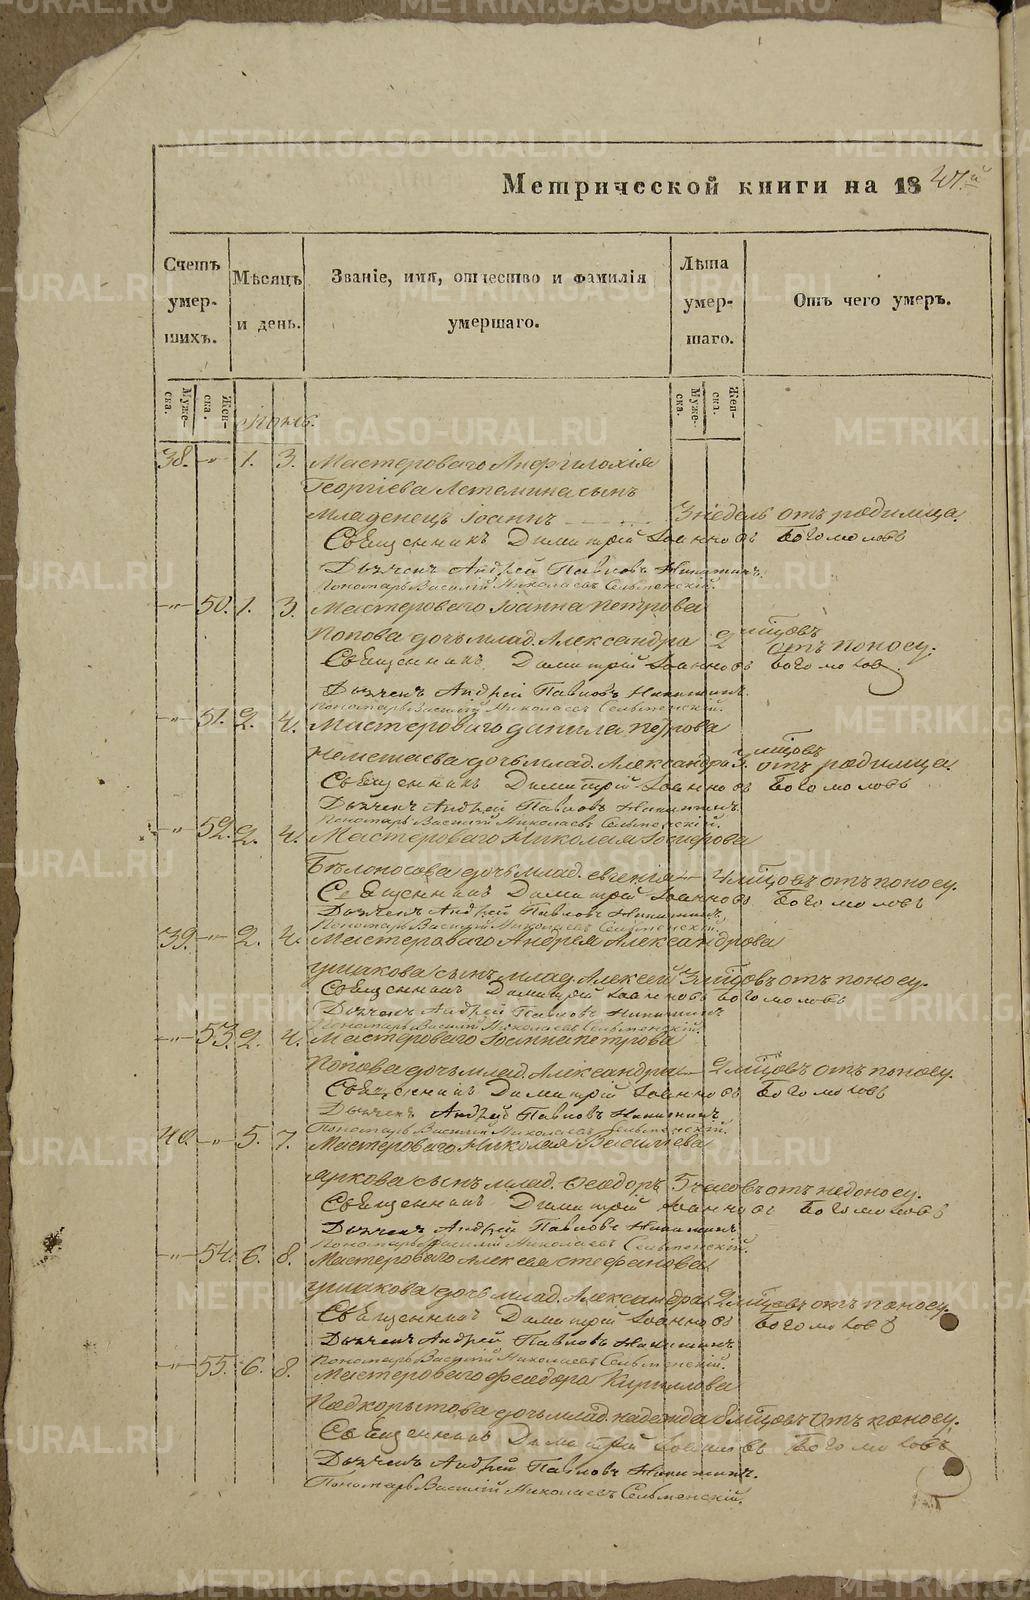 Метрической книги на 1847й
Счетъ умер- шихъ.
Мѣсяцъ и день.
Званіе, имя, отчество и фамилія умершаго.
Лѣта умер- шаго.
Отъ чего умеръ.
Муже- ска.
Жен- ска.
Муже- ска.
Жен- ска.
38. -"- 1. 3. Мастероваго Амфилохія
Георгіева сынъ
младенецъ Іоаннъ 3 недель отъ родимца.
Священникъ Димитрій Іоанновъ Богомоловъ
Дьяченъ Андрей Павловъ Никитинъ.
Пономарь Василій Николаевъ Сельменскій.
-"- 50. 1. 3. Мастероваго Іоанна Петрова
Попова дочь млад. Александра 2 мѣсцовъ отъ поносу.
Священникъ Димитрій Іоанновъ Богомолов
Дьяченъ Андрей Павловъ Никитинъ.
Пономарь Василій Николаевъ Сельменскій.
-"- 51. 2. 4. Мастероваго Данила Петрова
дочь млад. Александра 3. мѣсцовъ отъ родимца.
Священникъ Димитрій Іоанновъ Богомоловъ
Дьяченъ Андрей Павловъ Никитинъ.
Пономарь Василій Николаевъ Сельменскій.
-"- 52. 2. 4. Мастероваго Николая Іосифова
Бѣлоносова дочь млад. Евгенія 4 мѣсцовъ отъ поносу.
Священникъ Димитрій Іоанновъ Богомоловъ
Дьяченъ Андрей Павловъ Никитинъ,
Пономарь Василій Николаевъ Сельменскій.
39. -"- 2. 4. Мастероваго Андрея Александрова
Ушакова сынъ млад. Алексей 3 мѣсцовъ отъ поносу.
Священникъ Димитрій Іоанновъ Богомоловъ
Дьяченъ Андрей Павловъ Никитинъ
Пономарь Василій Николаевъ Сельменскій.
-"- 53. 2. 4. Мастероваго Іоанна Петрова
Попова дочь млад. Александра 2 мѣсцовъ отъ поносу.
Священникъ Димитрій Іоанновъ Богомоловъ
Дьяченъ Андрей Павловъ Никитинъ.
Пономарь Василій Николаевъ Сельменскій.
40. -"- 5. 7. Мастероваго Николая Васильева
Яркова сынъ млад. Феодоръ 5 часовъ отъ недоносу.
Священникъ Димитрій Іоанновъ Богомоловъ
Дьяченъ Андрей Павловъ Никитинъ
Пономарь Василій Николаевъ Сельменскій.
-"- 54. 6. 8. Мастероваго Алексея Стефанова
Ушакова дочь млад. Александра 2 мѣсцовъ отъ поносу.
Священникъ Димитрій Іоанновъ Богомоловъ
Дьяченъ Андрей Павловъ Никитинъ
Пономарь Василій Николаевъ Сельменскій.
-"- 55. 6. 8. Мастероваго Феодора Кириллова
Подкорытова дочь млад. Надежда 8 мѣсцовъ отъ поносу.
Священникъ Димитрій Іоанновъ Богомоловъ
Дьяченъ Андрей Павловъ Никитинъ.
Пономарь Василій Николаевъ Сельменскій.
METRIKI.GASO-URAL.RU